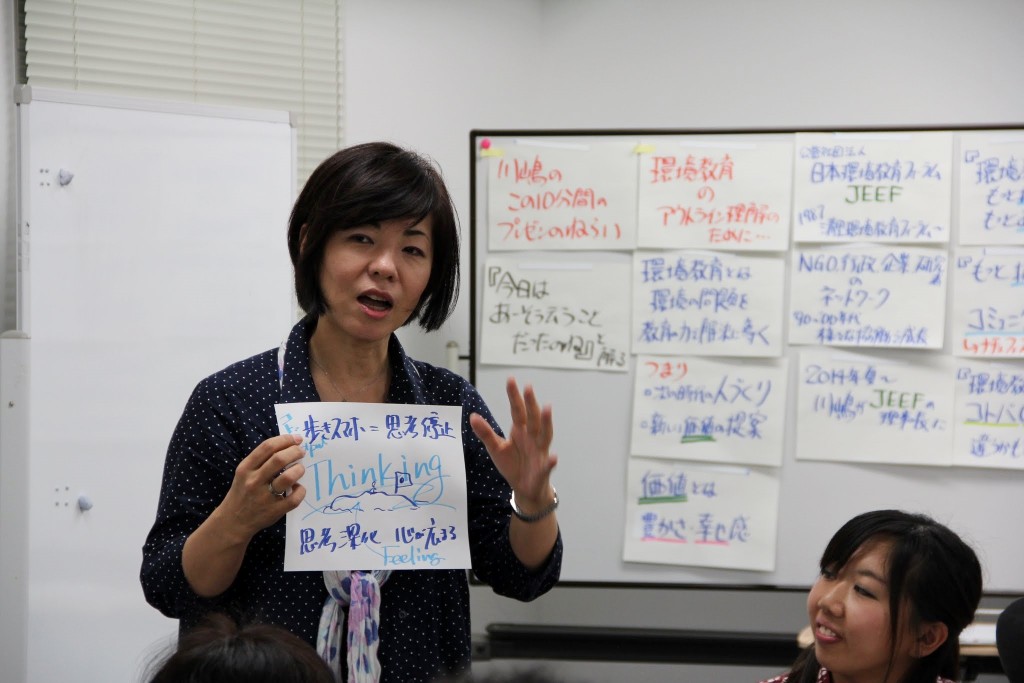 歩きスマホ = 思考停止
Thinking
思考深化 心が広まる
Feeling
川嶋の
この10分間の
プレゼンのねらい
『今日は
あーそういうこと
だったのね』と解る
環境教育
の
アウトライン理解の
ために…
環境教育とは
環境の問題を
教育の力で解決に導く
つまり
人づくり
新しい価値の提案
価値とは
豊かさ・幸せ感
公益社団法人
日本環境教育フォーラム
JEEF
1987
清里環境教育フォーラム～
NGO 行政 企業 研究者
の
ネットワーク
2014年夏～
川嶋がJEEFの
理事長に
『環境
もっと
もっと
『もっと
コミュニ
環境
コトバ
違うかも